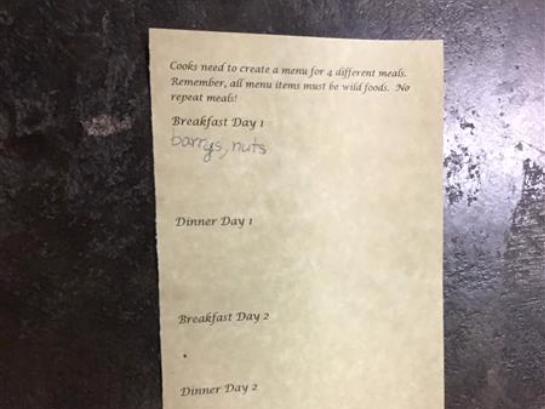 Cooks need to create a menu for 4 different meals.
Remember, all menu items must be wild foods. No
repeat meals!
Breakfast Day 1
barrys, nuts
Dinner Day 1
Breakfast Day 2
Dinner Day 2